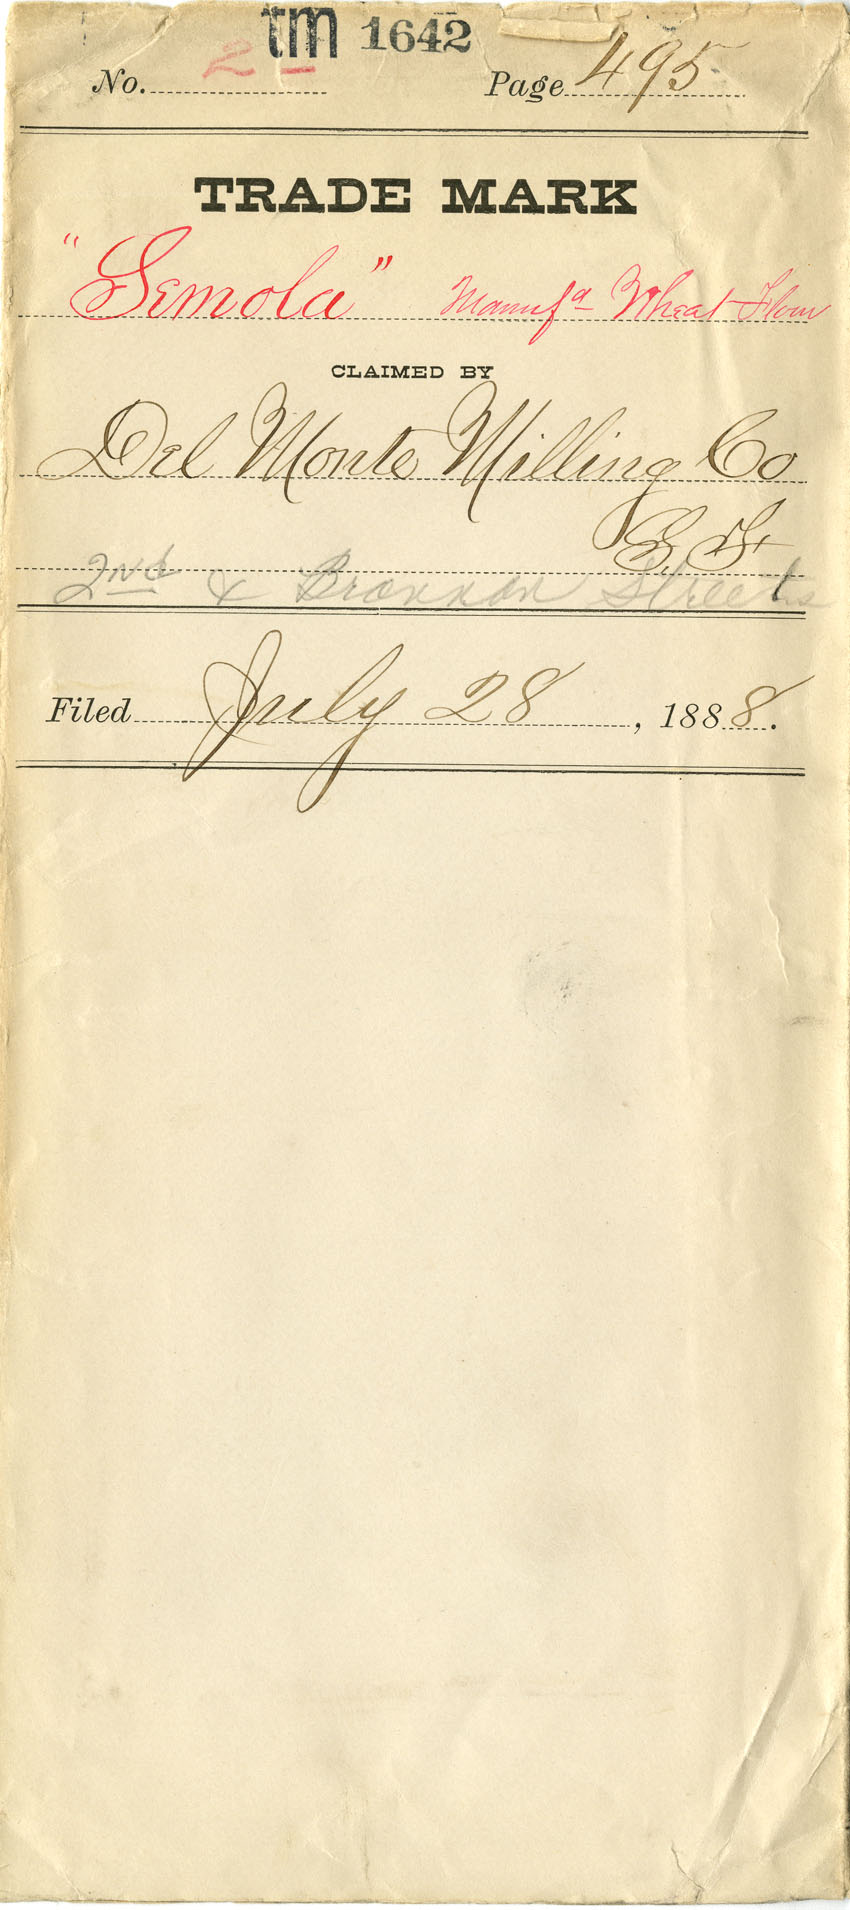 tm 1642
No. 2 Page 495
TRADE MARK
"Semola" Manufd Wheat Flour
CLAIMED BY
Del Monte Milling Co
S. F.
2nd & Brannan Streets
Filed July 28, 1888.